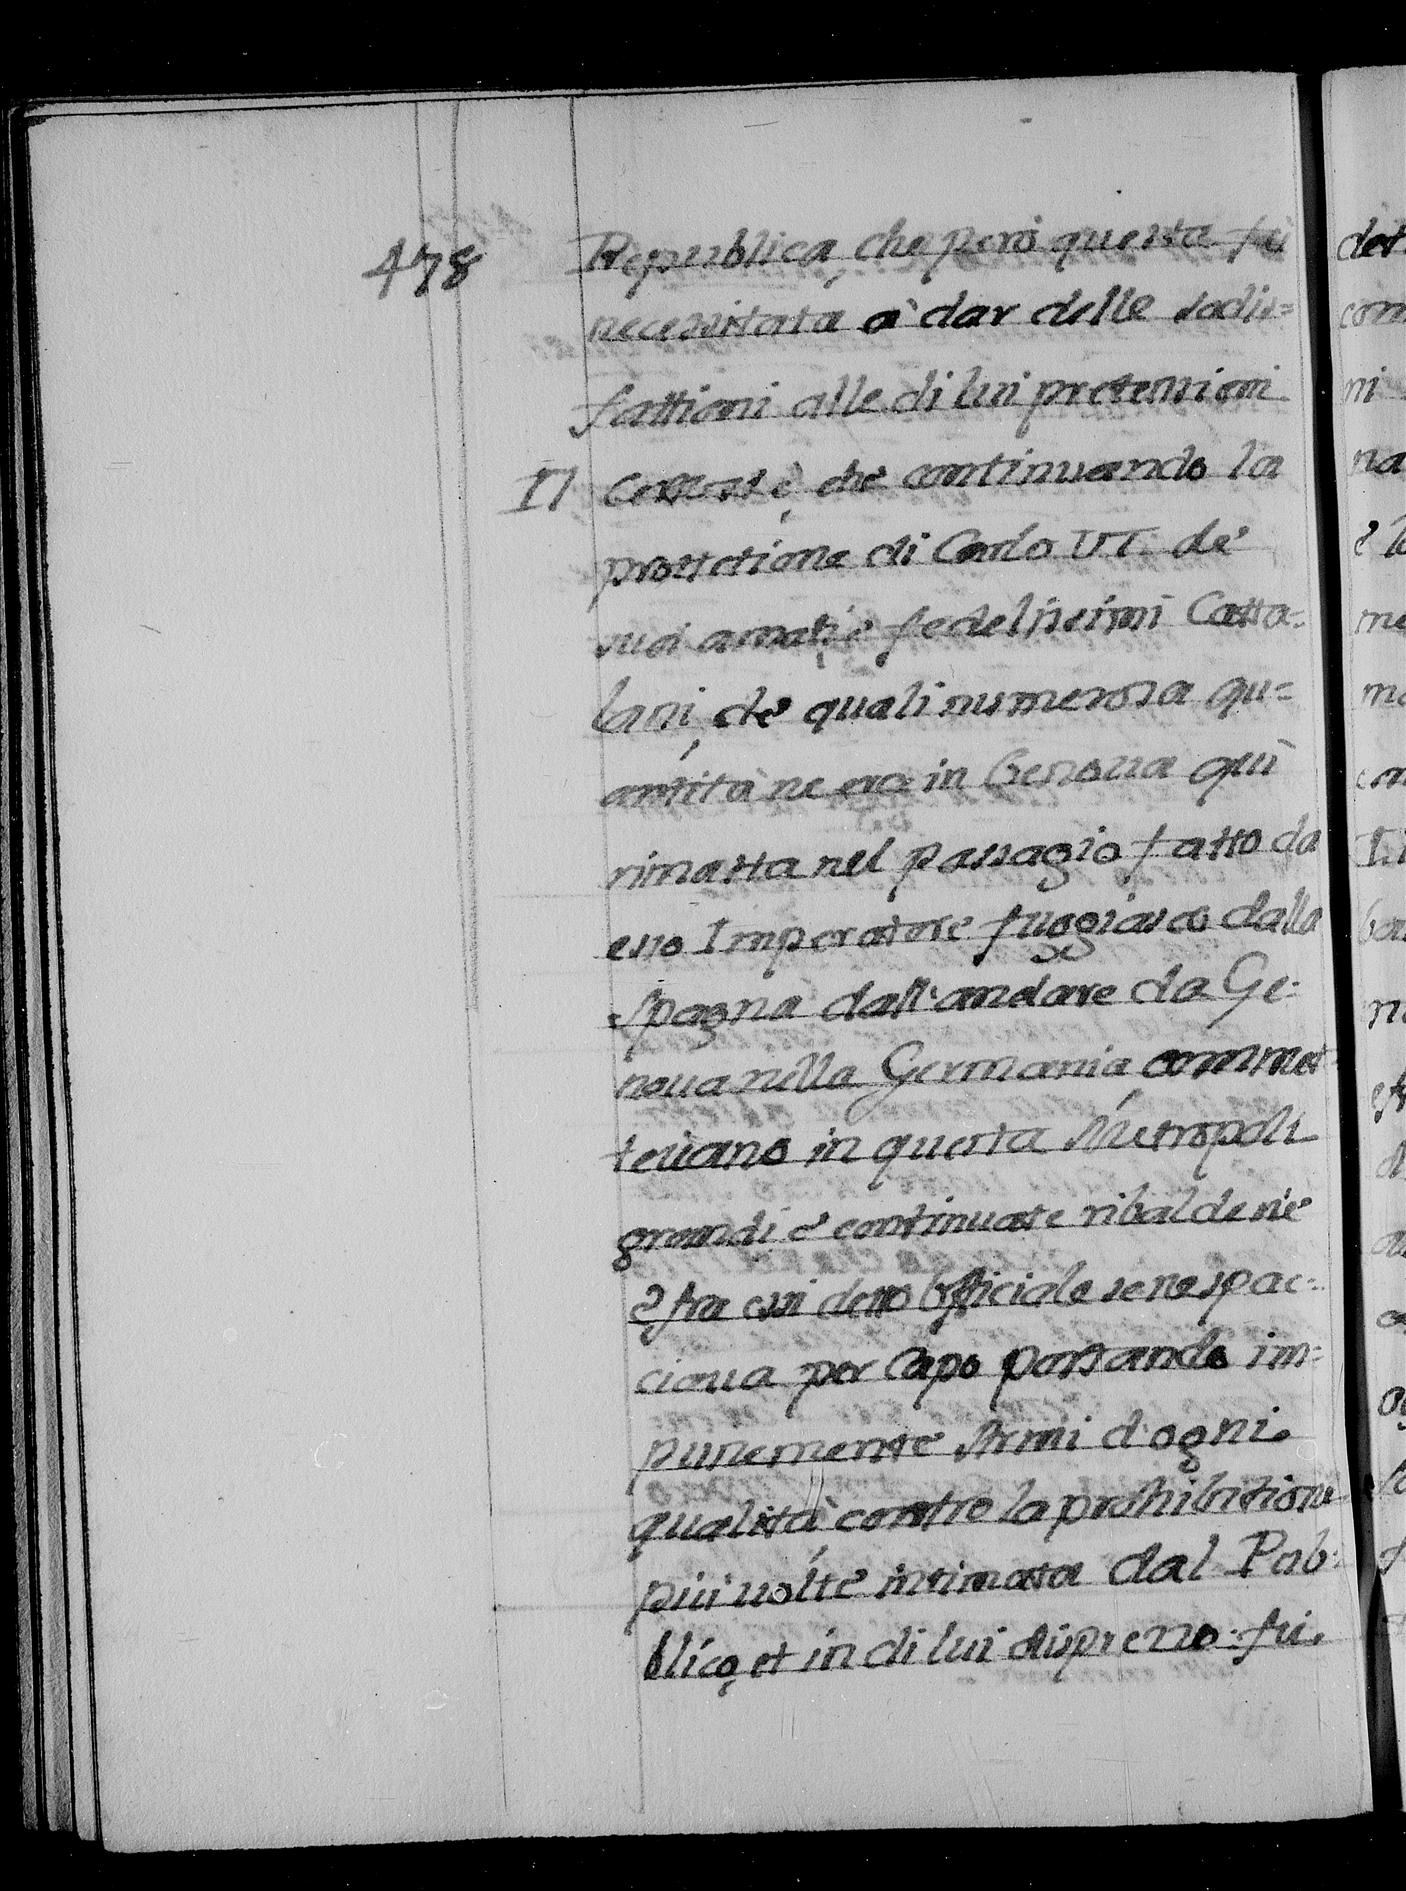 478
Republica, che però questa fù
necessitata à dar delle sadis=
fattioni alle di lui pretensioni
Il che continuando la
protettione di Carlo VI. de
suoi amati, e fedelissimi Catta=
lani, de quali numerosa qu=
antità ne era in Genoua qui
rimasta nel passagio fatto da
esso Imperatore fuggiasco dalla
Spagna dall'andare da Ge=
noua nella Germania, commet=
teuano in questa Metropoli
grandi e continuate ribalderie
e fra essi detto Officiale se ne spac=
ciaua per Capo portando im=
punemente Armi d'ogni
qualità, contro la prohibitione
più uolte intimata dal Pub=
blico, et in di lui disprezzo fù